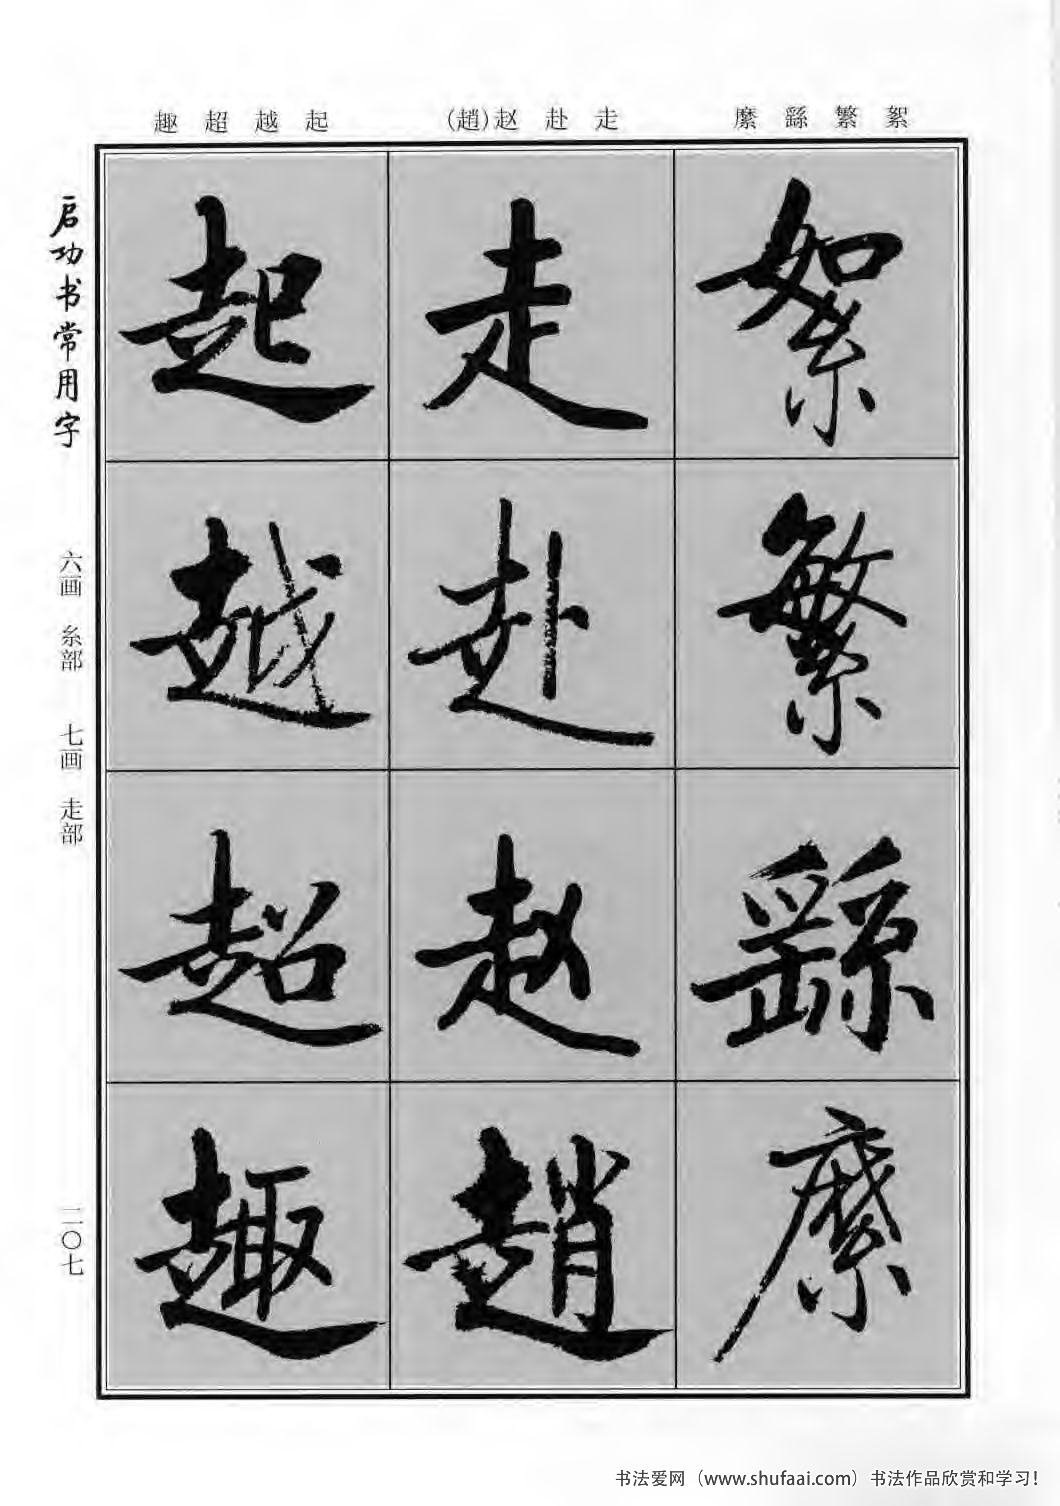 趣 超 越 起 (趙)赵 赴 走 縻 繇 繁 絮
絮
繁
繇
縻
走
赴
赵
趙
起
越
超
趣
启功书常用字
六画 糸部 七画 走部
二〇七
书法爱网(www.shufaai.com)书法作品欣赏和学习!